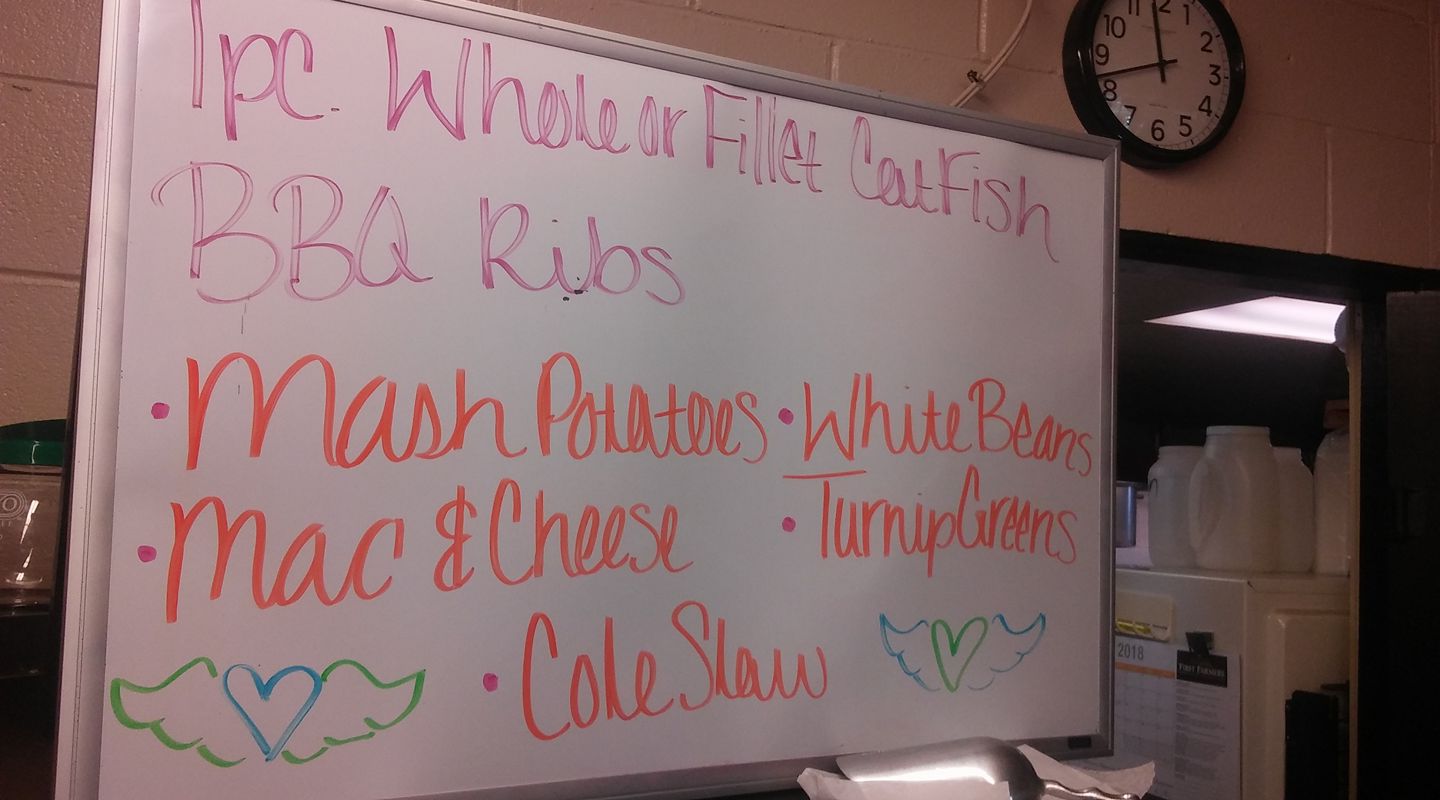 1pc. Whole or Fillet CatFish
BBQ Ribs
• Mash Potatoes • White Beans
• Mac & Cheese • Turnip Greens
• Cole Slaw
11 12 1
10 2
9 3
8 4
7 6 5
2018
FIRST FARMERS